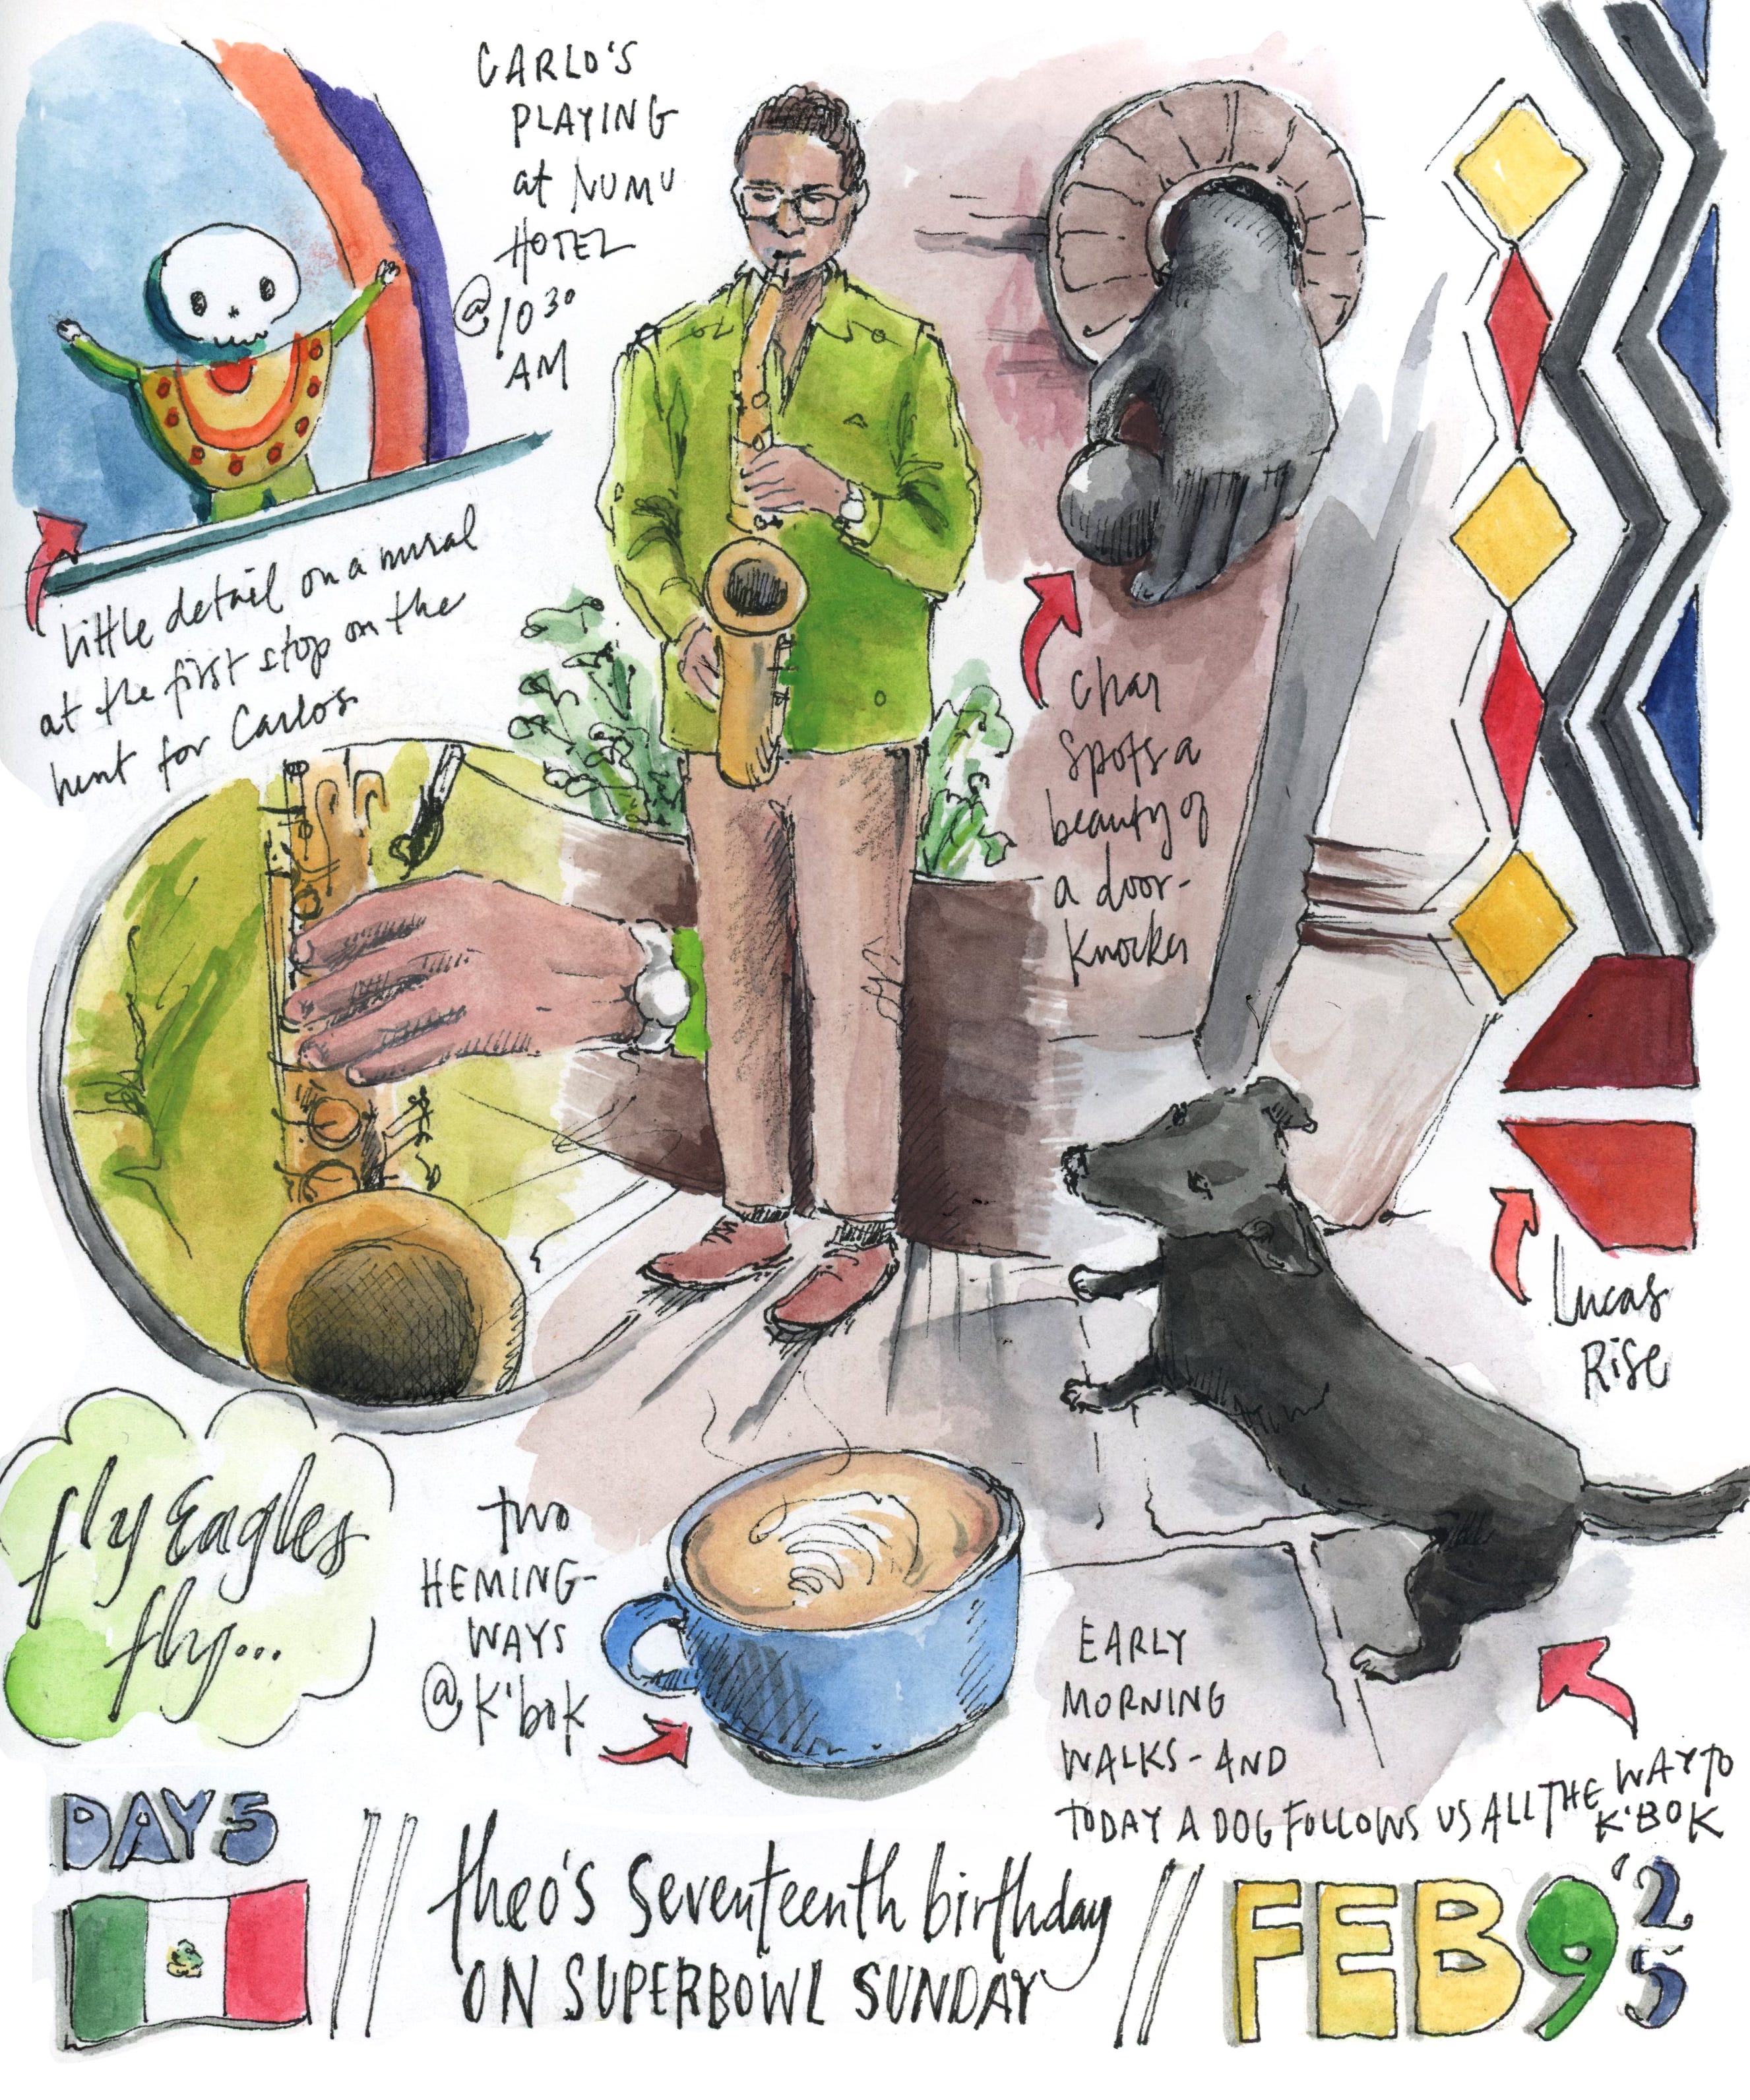 CARLO'S
PLAYING
at NUMU
HOTEL
@ 10 30
AM
little detail on a mural
at the first stop on the
hunt for Carlos
Char
spots a
beauty of
a door-
knocker
Lucas
Rise
fly Eagles
fly...
two
HEMING-
WAYS
@ K'bok
EARLY
MORNING
WALKS - AND
TODAY A DOG FOLLOWS US ALL THE WAY TO
K'BOK
DAY 5
theo's seventeenth birthday
ON SUPERBOWL SUNDAY
FEB 9 '25